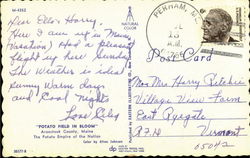 M-4262
NATURAL COLOR
Miss Ella & Harry,
Here I am up in Maine
Vacation) Had a pleasant
flight up here Sunday
The Weather is ideal
Sunny Warm Days
and Cool Nights
Love
"POTATO FIELD IN BLOOM"
Aroostook County, Maine
The Potato Empire of the Nation
Color by
Post Card
PERHAM, ME.
A.M.
Mr & Mrs Harry Ritchie
Village View Farm
East Ryegate
R.F.D. Vermont
05042